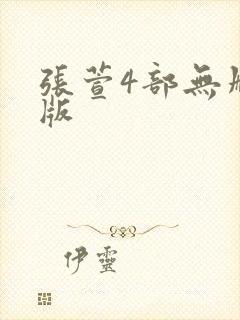 張萱4部無
版
伊靈